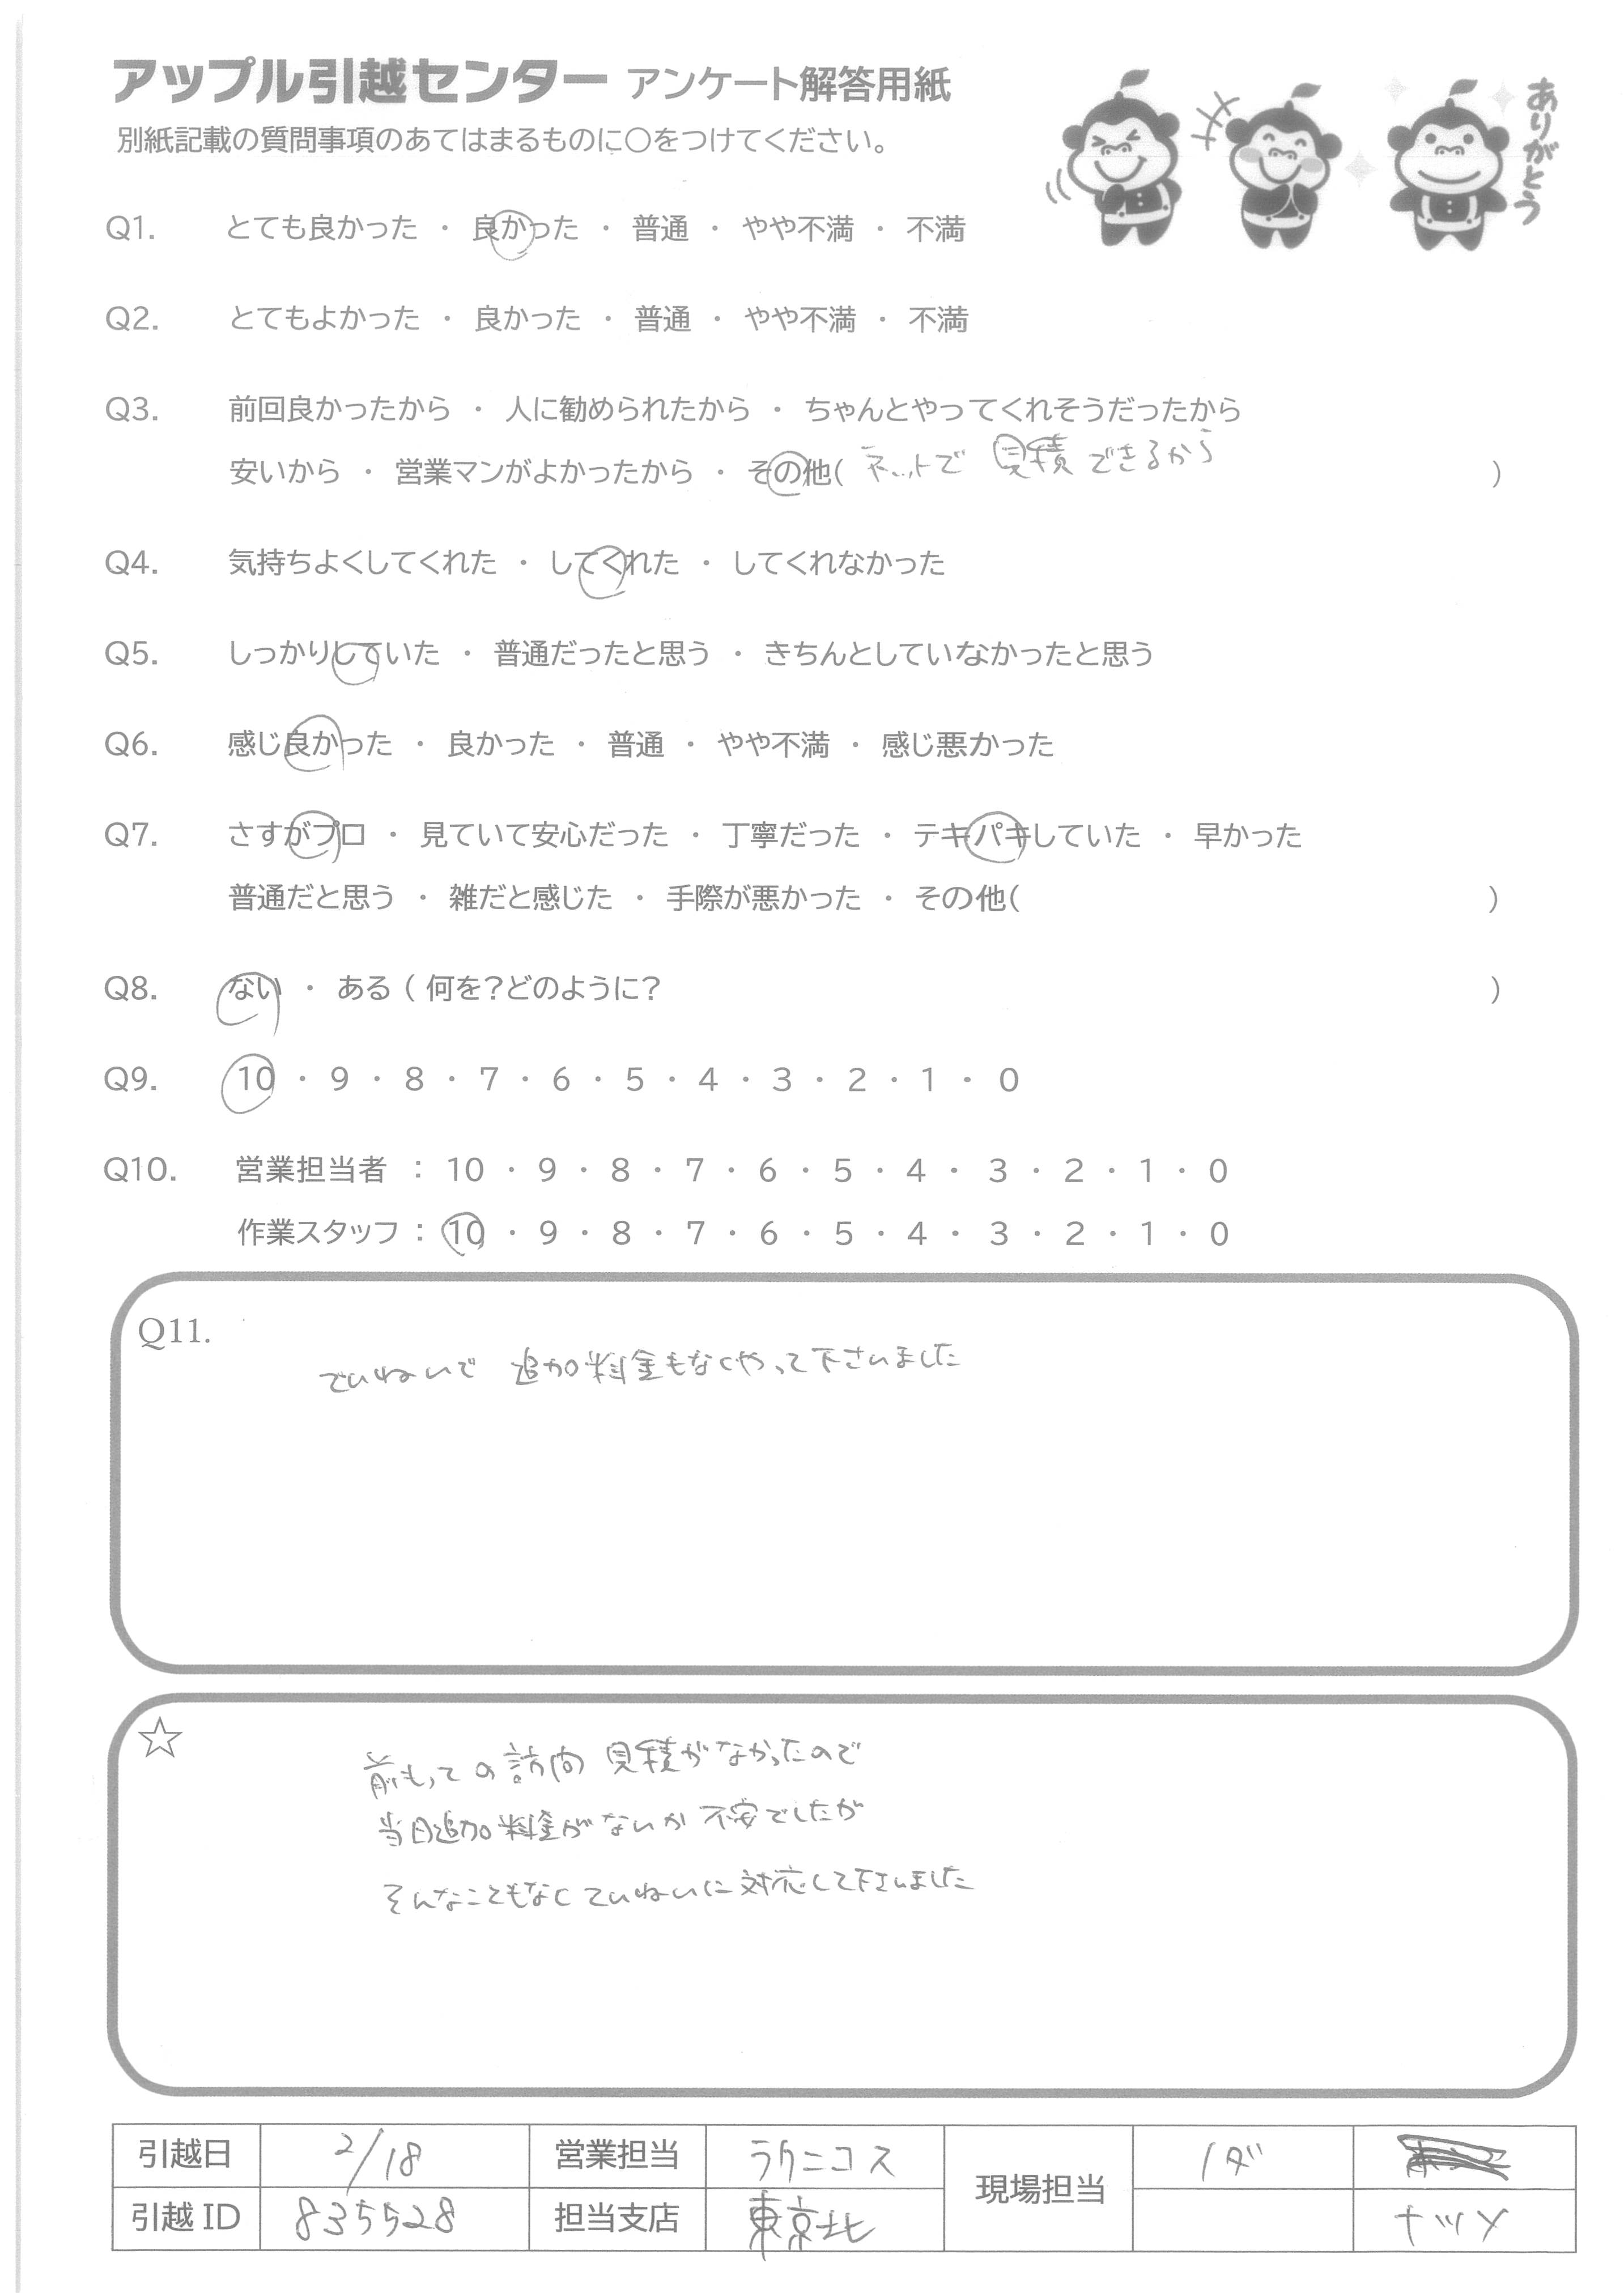 アップル引越センター アンケート解答用紙
別紙記載の質問事項のあてはまるものに〇をつけてください。
ありがとう
Q1. とても良かった ・ 良かった ・ 普通 ・ やや不満 ・ 不満
Q2. とてもよかった ・ 良かった ・ 普通 ・ やや不満 ・ 不満
Q3. 前回良かったから ・ 人に勧められたから ・ ちゃんとやってくれそうだったから
安いから ・ 営業マンがよかったから ・ その他( ネットで 見積できるから )
Q4. 気持ちよくしてくれた ・ してくれた ・ してくれなかった
Q5. しっかりしていた ・ 普通だったと思う ・ きちんとしていなかったと思う
Q6. 感じ良かった ・ 良かった ・ 普通 ・ やや不満 ・ 感じ悪かった
Q7. さすがプロ ・ 見ていて安心だった ・ 丁寧だった ・ テキパキしていた ・ 早かった
普通だと思う ・ 雑だと感じた ・ 手際が悪かった ・ その他( )
Q8. ない ・ ある ( 何を?どのように? )
Q9. 10 ・ 9 ・ 8 ・ 7 ・ 6 ・ 5 ・ 4 ・ 3 ・ 2 ・ 1 ・ 0
Q10. 営業担当者 : 10 ・ 9 ・ 8 ・ 7 ・ 6 ・ 5 ・ 4 ・ 3 ・ 2 ・ 1 ・ 0
作業スタッフ : 10 ・ 9 ・ 8 ・ 7 ・ 6 ・ 5 ・ 4 ・ 3 ・ 2 ・ 1 ・ 0
Q11.
ていねいで 追加料金もなくやって下さいました
☆
前もっての訪問見積がなかったので
当日追加料金がないか不安でしたが
そんなこともなくていねいに対応して下さいました
引越日 2/18 営業担当 ラクニコス 現場担当 イダ
引越ID 835528 担当支店 東京北 ナツメ